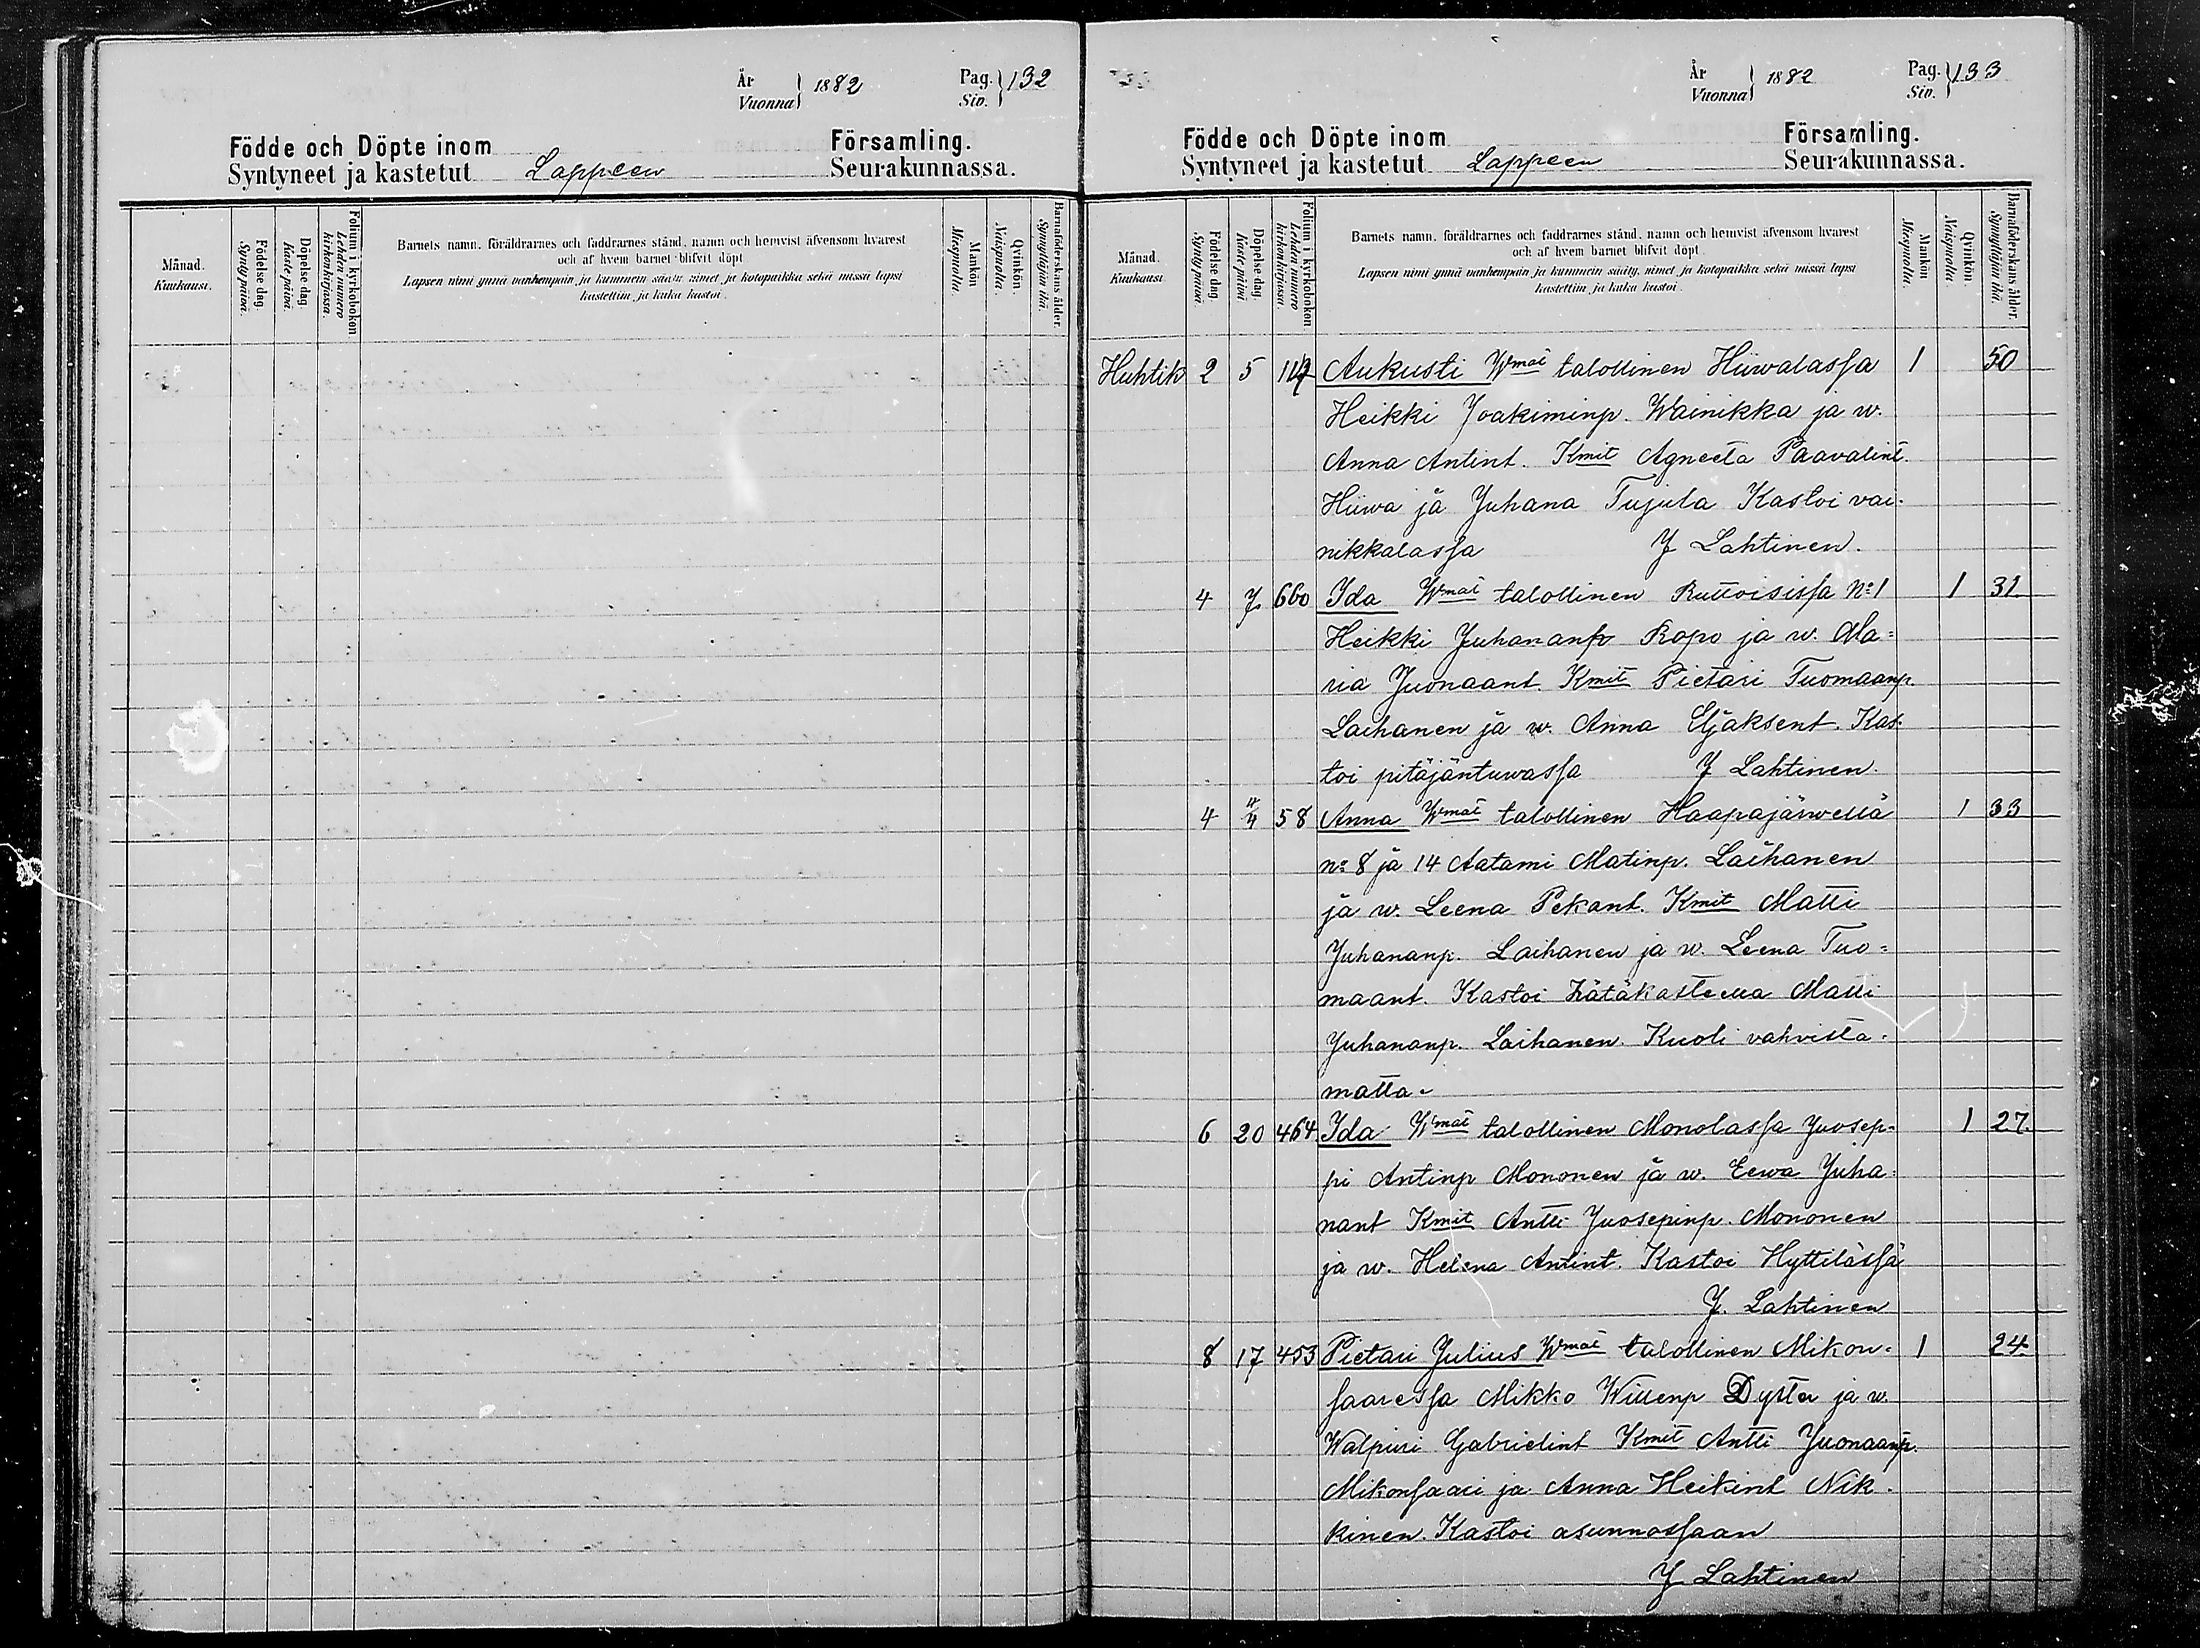 År
Vuonna 1882
Pag. 132
Siv.
Födde och Döpte inom Församling.
Syntyneet ja kastetut Lappeen Seurakunnassa.
Månad.
Kuukausi.
Födelse dag.
Synty päivä.
Döpelse dag.
Kaste päivä.
Folium i kyrkoboken
Lehden numero
kirkonkirjassa.
Barnets namn, föräldrarnes och faddrarnes stånd, namn och hemvist äfvensom hvarest
och af hvem barnet blifvit döpt.
Lapsen nimi ynnä vanhempain ja kummein sääty, nimet ja kotopaikka sekä missä lapsi
kastettiin ja kuka kastoi.
Mankön
Miespuolia.
Qvinkön.
Naispuolia.
Barnaföderskans ålder.
Synnyttäjän ikä.
År
Vuonna 1882
Pag. 133
Siv.
Födde och Döpte inom Församling.
Syntyneet ja kastetut Lappeen Seurakunnassa.
Månad.
Kuukausi.
Födelse dag.
Synty päivä.
Döpelse dag.
Kaste päivä
Folium i kyrkoboken
Lehden numero
kirkonkirjassa.
Barnets namn, föräldrarnes och faddrarnes stånd, namn och hemvist äfvensom hvarest
och af hvem barnet blifvit döpt.
Lapsen nimi ynnä vanhempain ja kummein sääty, nimet ja kotopaikka sekä missä lapsi
kastettiin ja kuka kastoi.
Mankön
Miespuolia.
Qvinkön.
Naispuolia.
Barnaföderskans ålder.
Synnyttäjän ikä.
Huhtik 2 5 Aukusti Wmat talollinen Hiiwalassa 1 50
Heikki Joakiminp. Wainikka ja w.
Anna Antint. Kmit Agneeta Paavalint.
Hiiwa ja Juhana Tujula Kastoi vai-
nikkalassa J Lahtinen.
4 7 660 Ida Wmat talollinen Ruttoisissa No 1 1 31
Heikki Juhananp Ropo ja w. Ma=
ria Juonaant. Kmit Pietari Tuomaanp.
Laihanen ja w. Anna Eljaksent. Kas-
toi pitäjäntuwassa J Lahtinen.
4 4/4 58 Anna Wmat talollinen Haapajärwellä 1 33
no 8 ja 14 Aatami Matinp. Laihanen
ja w. Leena Pekant. Kmit Matti
Juhananp. Laihanen ja w. Leena Tuo=
maant. Kastoi hätäkasteella Matti
Juhananp. Laihanen. Kuoli vahvista-
matta.
6 20 464 Ida Wmat talollinen Monolassa Juosep-
pi Antinp Mononen ja w. Eewa Juha-
nant Kmit Antti Juosepinp. Mononen
ja w. Helena Antint. Kastoi Hyttilässä
J. Lahtinen
8 17 453 Pietari Julius Wmat talollinen Mikon- 1 24
saaressa Mikko Willenp Dyster ja w.
Walpuri Gabrielint Kmit Antti Juonaanp.
Mikonsaari ja Anna Heikint Nik-
kinen. Kastoi asunnossaan
J Lahtinen